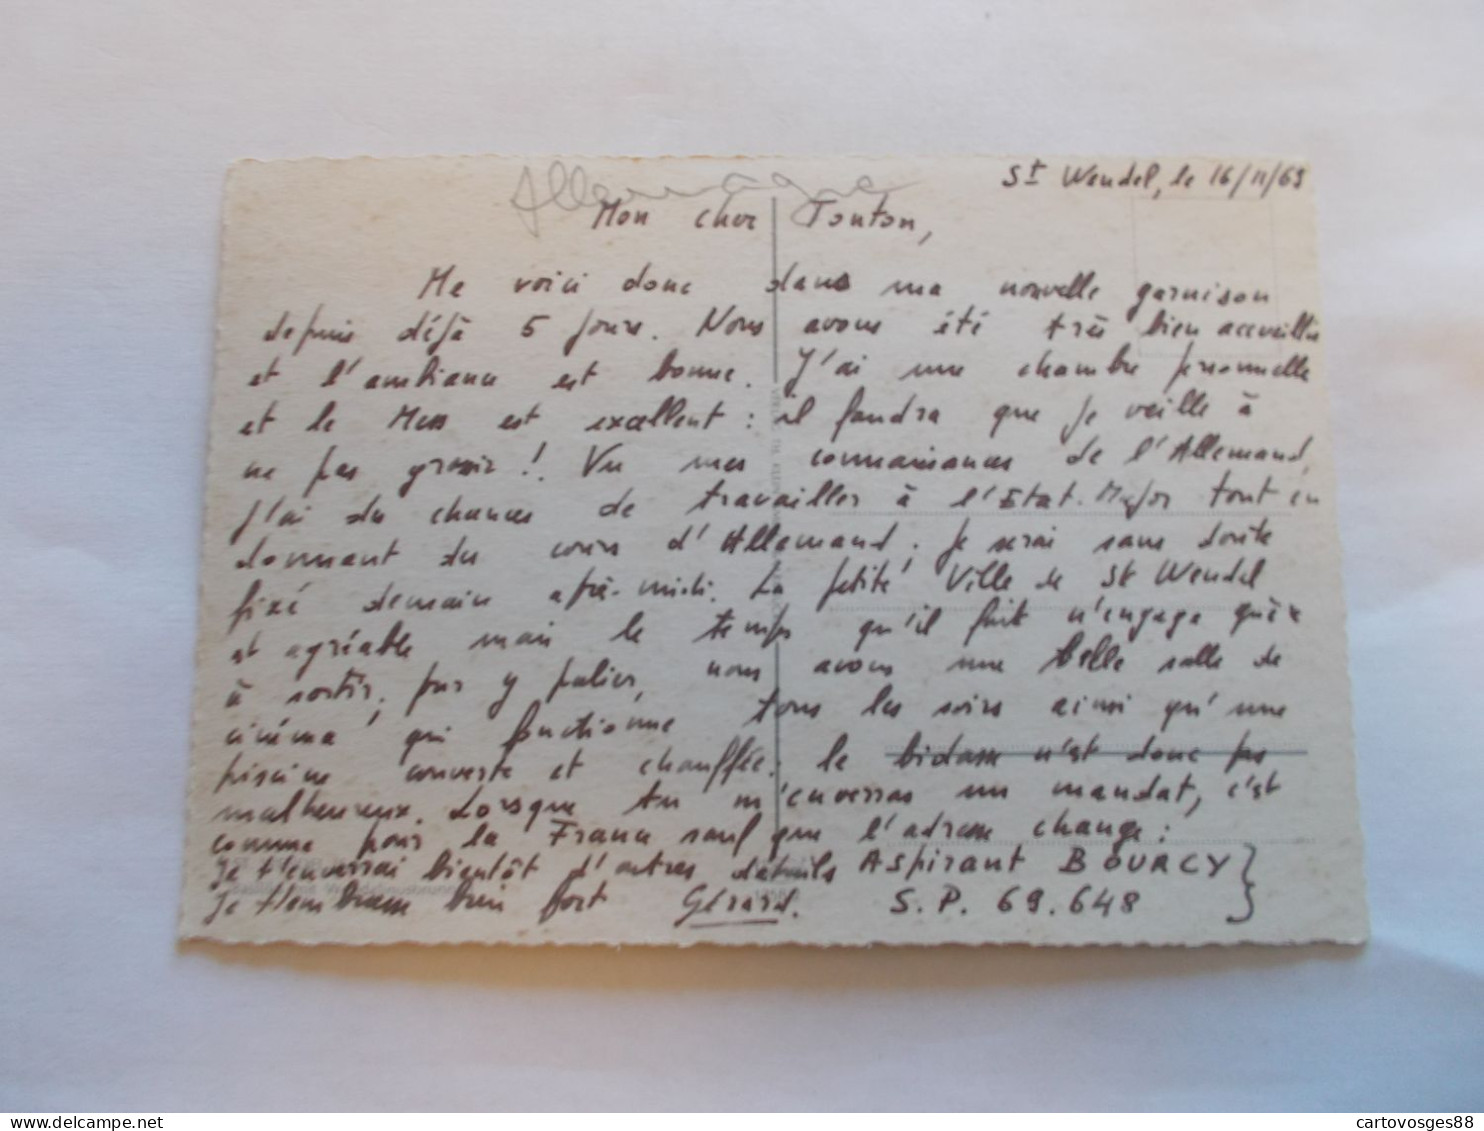 Allemagne
St Wendel, le 16/11/69
Mon cher Tonton,
Me voici donc dans ma nouvelle garnison
depuis déjà 5 jours. Nous avons été très bien accueillis
et l'ambiance est bonne. J'ai une chambre personnelle
et le Mess est excellent : il faudra que je veille à
ne pas grossir ! Vu mes connaissances de l'Allemand,
j'ai des chances de travailler à l'Etat-Major tout en
donnant du cours d'Allemand. Je serai sans doute
fixé demain après-midi. La petite Ville de St Wendel
est agréable mais le temps qu'il fait n'engage guère
à sortir. Pour y palier, nous avons une belle salle de
cinéma qui fonctionne tous les soirs ainsi qu'une
piscine couverte et chauffée. Le bidasse n'est donc pas
malheureux. Lorsque tu m'enverras un mandat, c'est
comme pour la France sauf que l'adresse change :
Je t'enverrai bientôt d'autres détails Aspirant BOURCY
Je t'embrasse bien fort Gérard. S.P. 69.648
cartovosges88